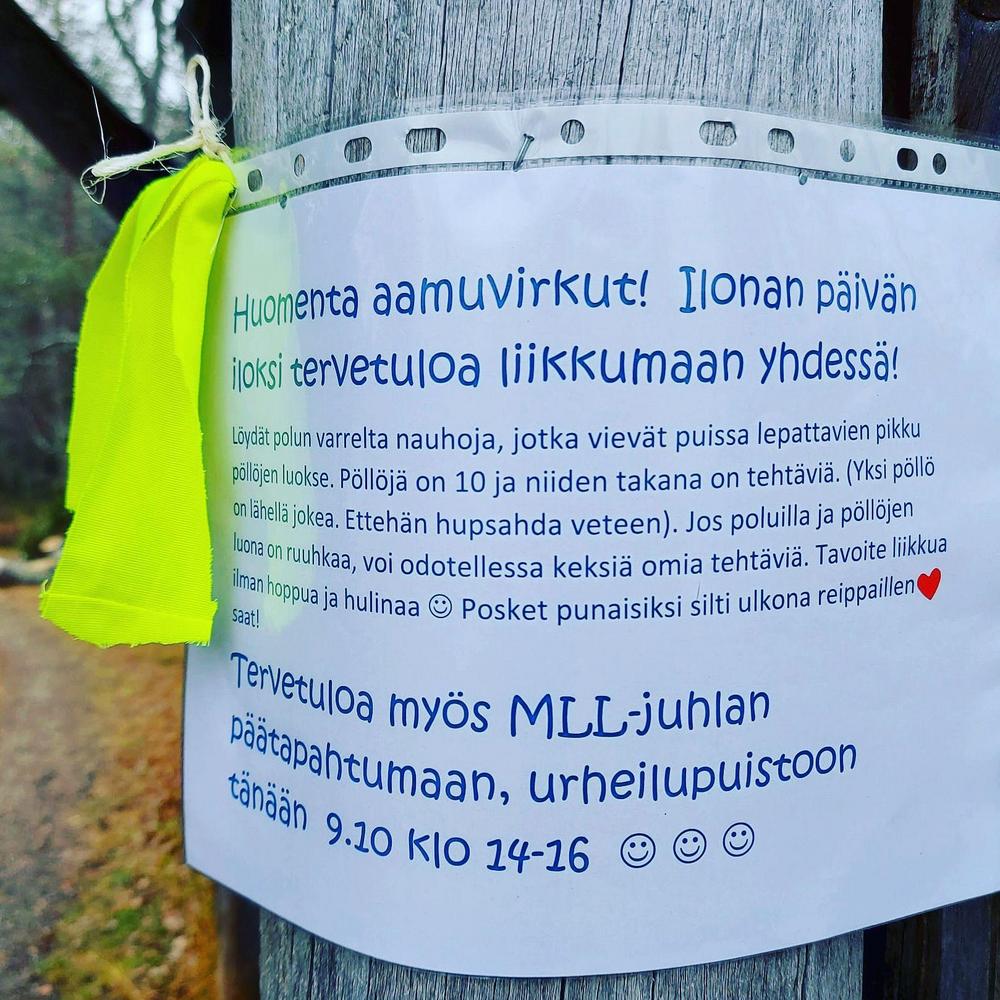 Huomenta aamuvirkut! Ilonan päivän
iloksi tervetuloa liikkumaan yhdessä!
Löydät polun varrelta nauhoja, jotka vievät puissa lepattavien pikku
pöllöjen luokse. Pöllöjä on 10 ja niiden takana on tehtäviä. (Yksi pöllö
on lähellä jokea. Ettehän hupsahda veteen). Jos poluilla ja pöllöjen
luona on ruuhkaa, voi odotellessa keksiä omia tehtäviä. Tavoite liikkua
ilman hoppua ja hulinaa ☺ Posket punaisiksi silti ulkona reippaillen❤
saat!
Tervetuloa myös MLL-juhlan
päätapahtumaan, urheilupuistoon
tänään 9.10 klo 14-16 ☺ ☺ ☺